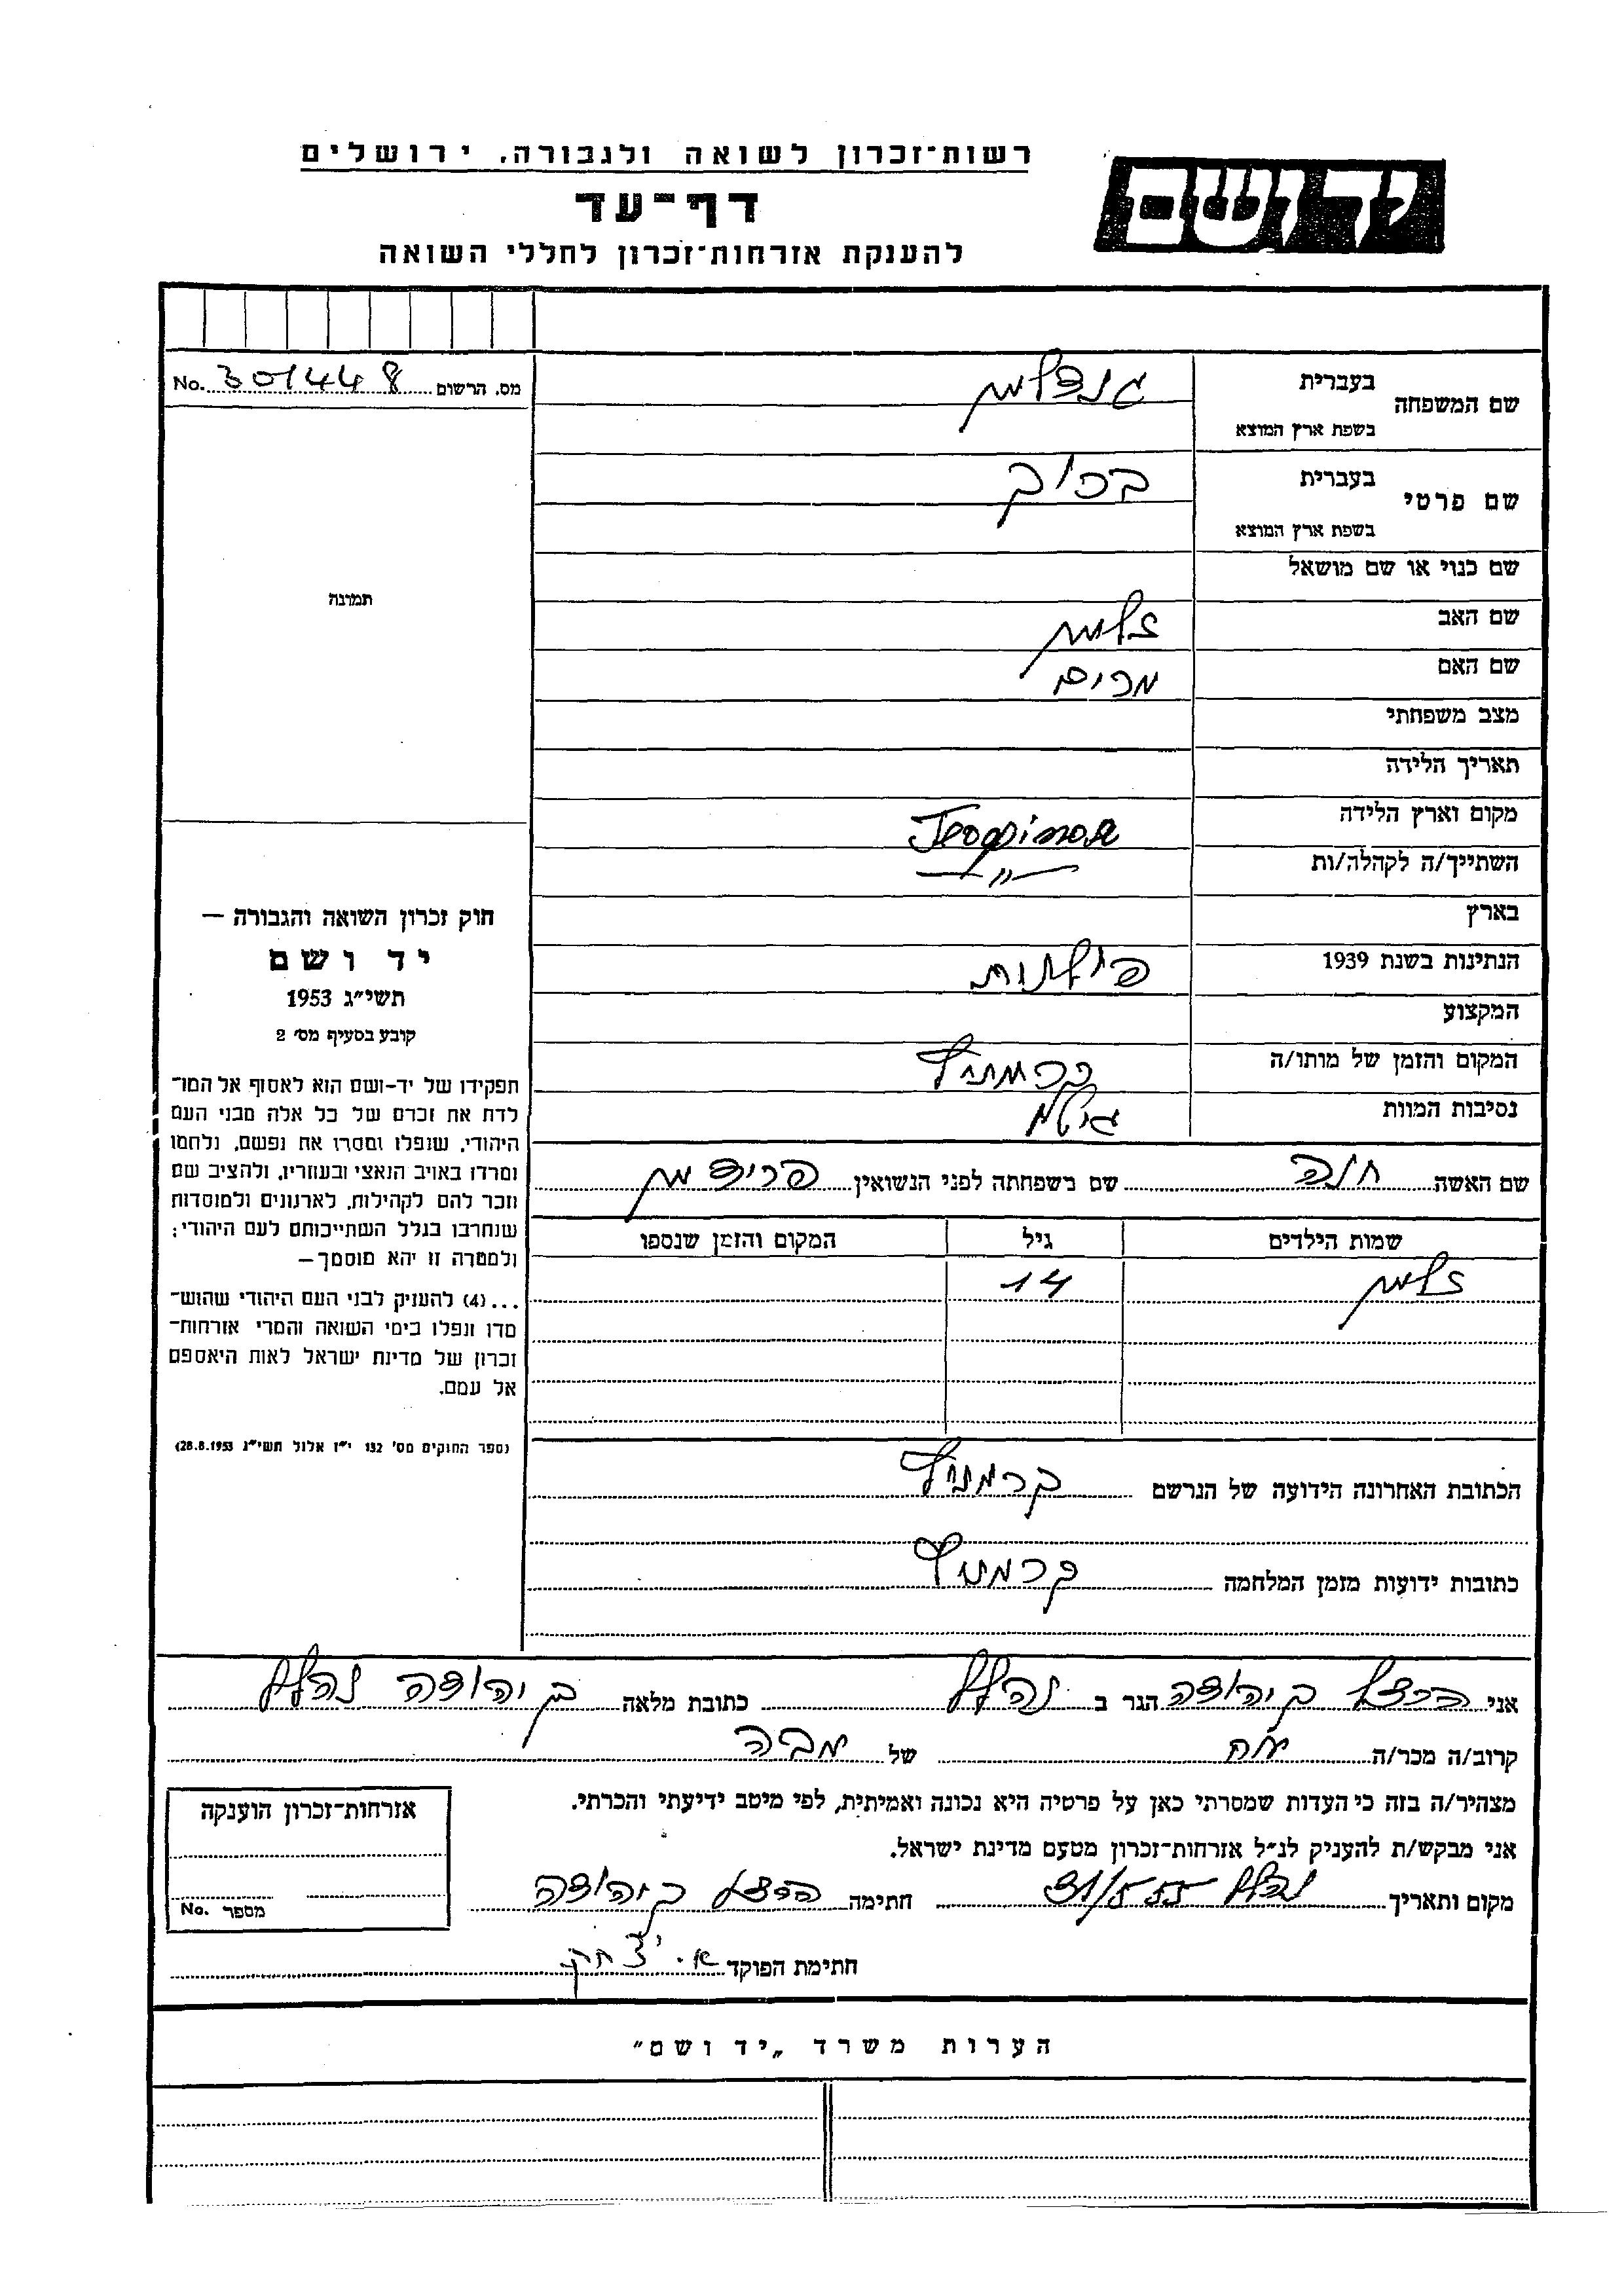 רשות־זכרון לשואה ולגבורה, ירושלים
יד ושם
דף־עד
להענקת אזרחות־זכרון לחללי השואה
מס. הרשום 301448 No.
שם המשפחה
בעברית גנדלמן
בשפת ארץ המוצא
שם פרטי
בעברית ברוך
בשפת ארץ המוצא
שם כנוי או שם מושאל
שם האב זלמן
שם האם מרים
מצב משפחתי
תאריך הלידה
מקום וארץ הלידה
השתייך/ה לקהלה/ות -"-
בארץ
הנתינות בשנת 1939 פולנית
המקצוע
המקום והזמן של מותו/ה
נסיבות המוות
תמונה
חוק זכרון השואה והגבורה —
יד ושם
תשי״ג 1953
קובע בסעיף מס׳ 2
תפקידו של יד-ושם הוא לאסוף אל המו־
לדת את זכרם של כל אלה מבני העם
היהודי, שנפלו ומסרו את נפשם, נלחמו
ומרדו באויב הנאצי ובעוזריו, ולהציב שם
וזכר להם לקהילות, לארגונים ולמוסדות
שנחרבו בגלל השתייכותם לעם היהודי;
ולמטרה זו יהא מוסמך—
...(4) להעניק לבני העם היהודי שהוש־
מדו ונפלו בימי השואה והמרי אזרחות־
זכרון של מדינת ישראל לאות היאספם
אל עמם.
(ספר החוקים מס׳ 132 י״ז אלול תשי״ג 28.8.1953)
שם האשה חנה שם משפחתה לפני הנשואין פרידמן
שמות הילדים גיל המקום והזמן שנספו
זלמן 14
הכתובת האחרונה הידועה של הנרשם
כתובות ידועות מזמן המלחמה
אני הרצל בן יהודה הגר ב נהלל כתובת מלאה בן יהודה נהלל
קרוב/ה מכר/ה של
מצהיר/ה בזה כי העדות שמסרתי כאן על פרטיה היא נכונה ואמיתית, לפי מיטב ידיעתי והכרתי.
אני מבקש/ת להעניק לנ״ל אזרחות־זכרון מטעם מדינת ישראל.
מקום ותאריך נהלל חתימה הרצל בן יהודה
חתימת הפוקד א. יצחק
אזרחות־זכרון הוענקה
מספר No.
הערות משרד „יד ושם״